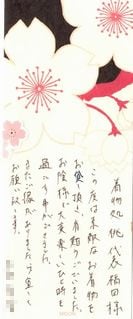 着物処 桃 代表 福田様
この度は素敵なお着物を
お貸し頂き、有難うございました。
お陰様で大変楽しいひと時を
過ごす事ができました。
またご縁がありましたら宜しく
お願い致します。